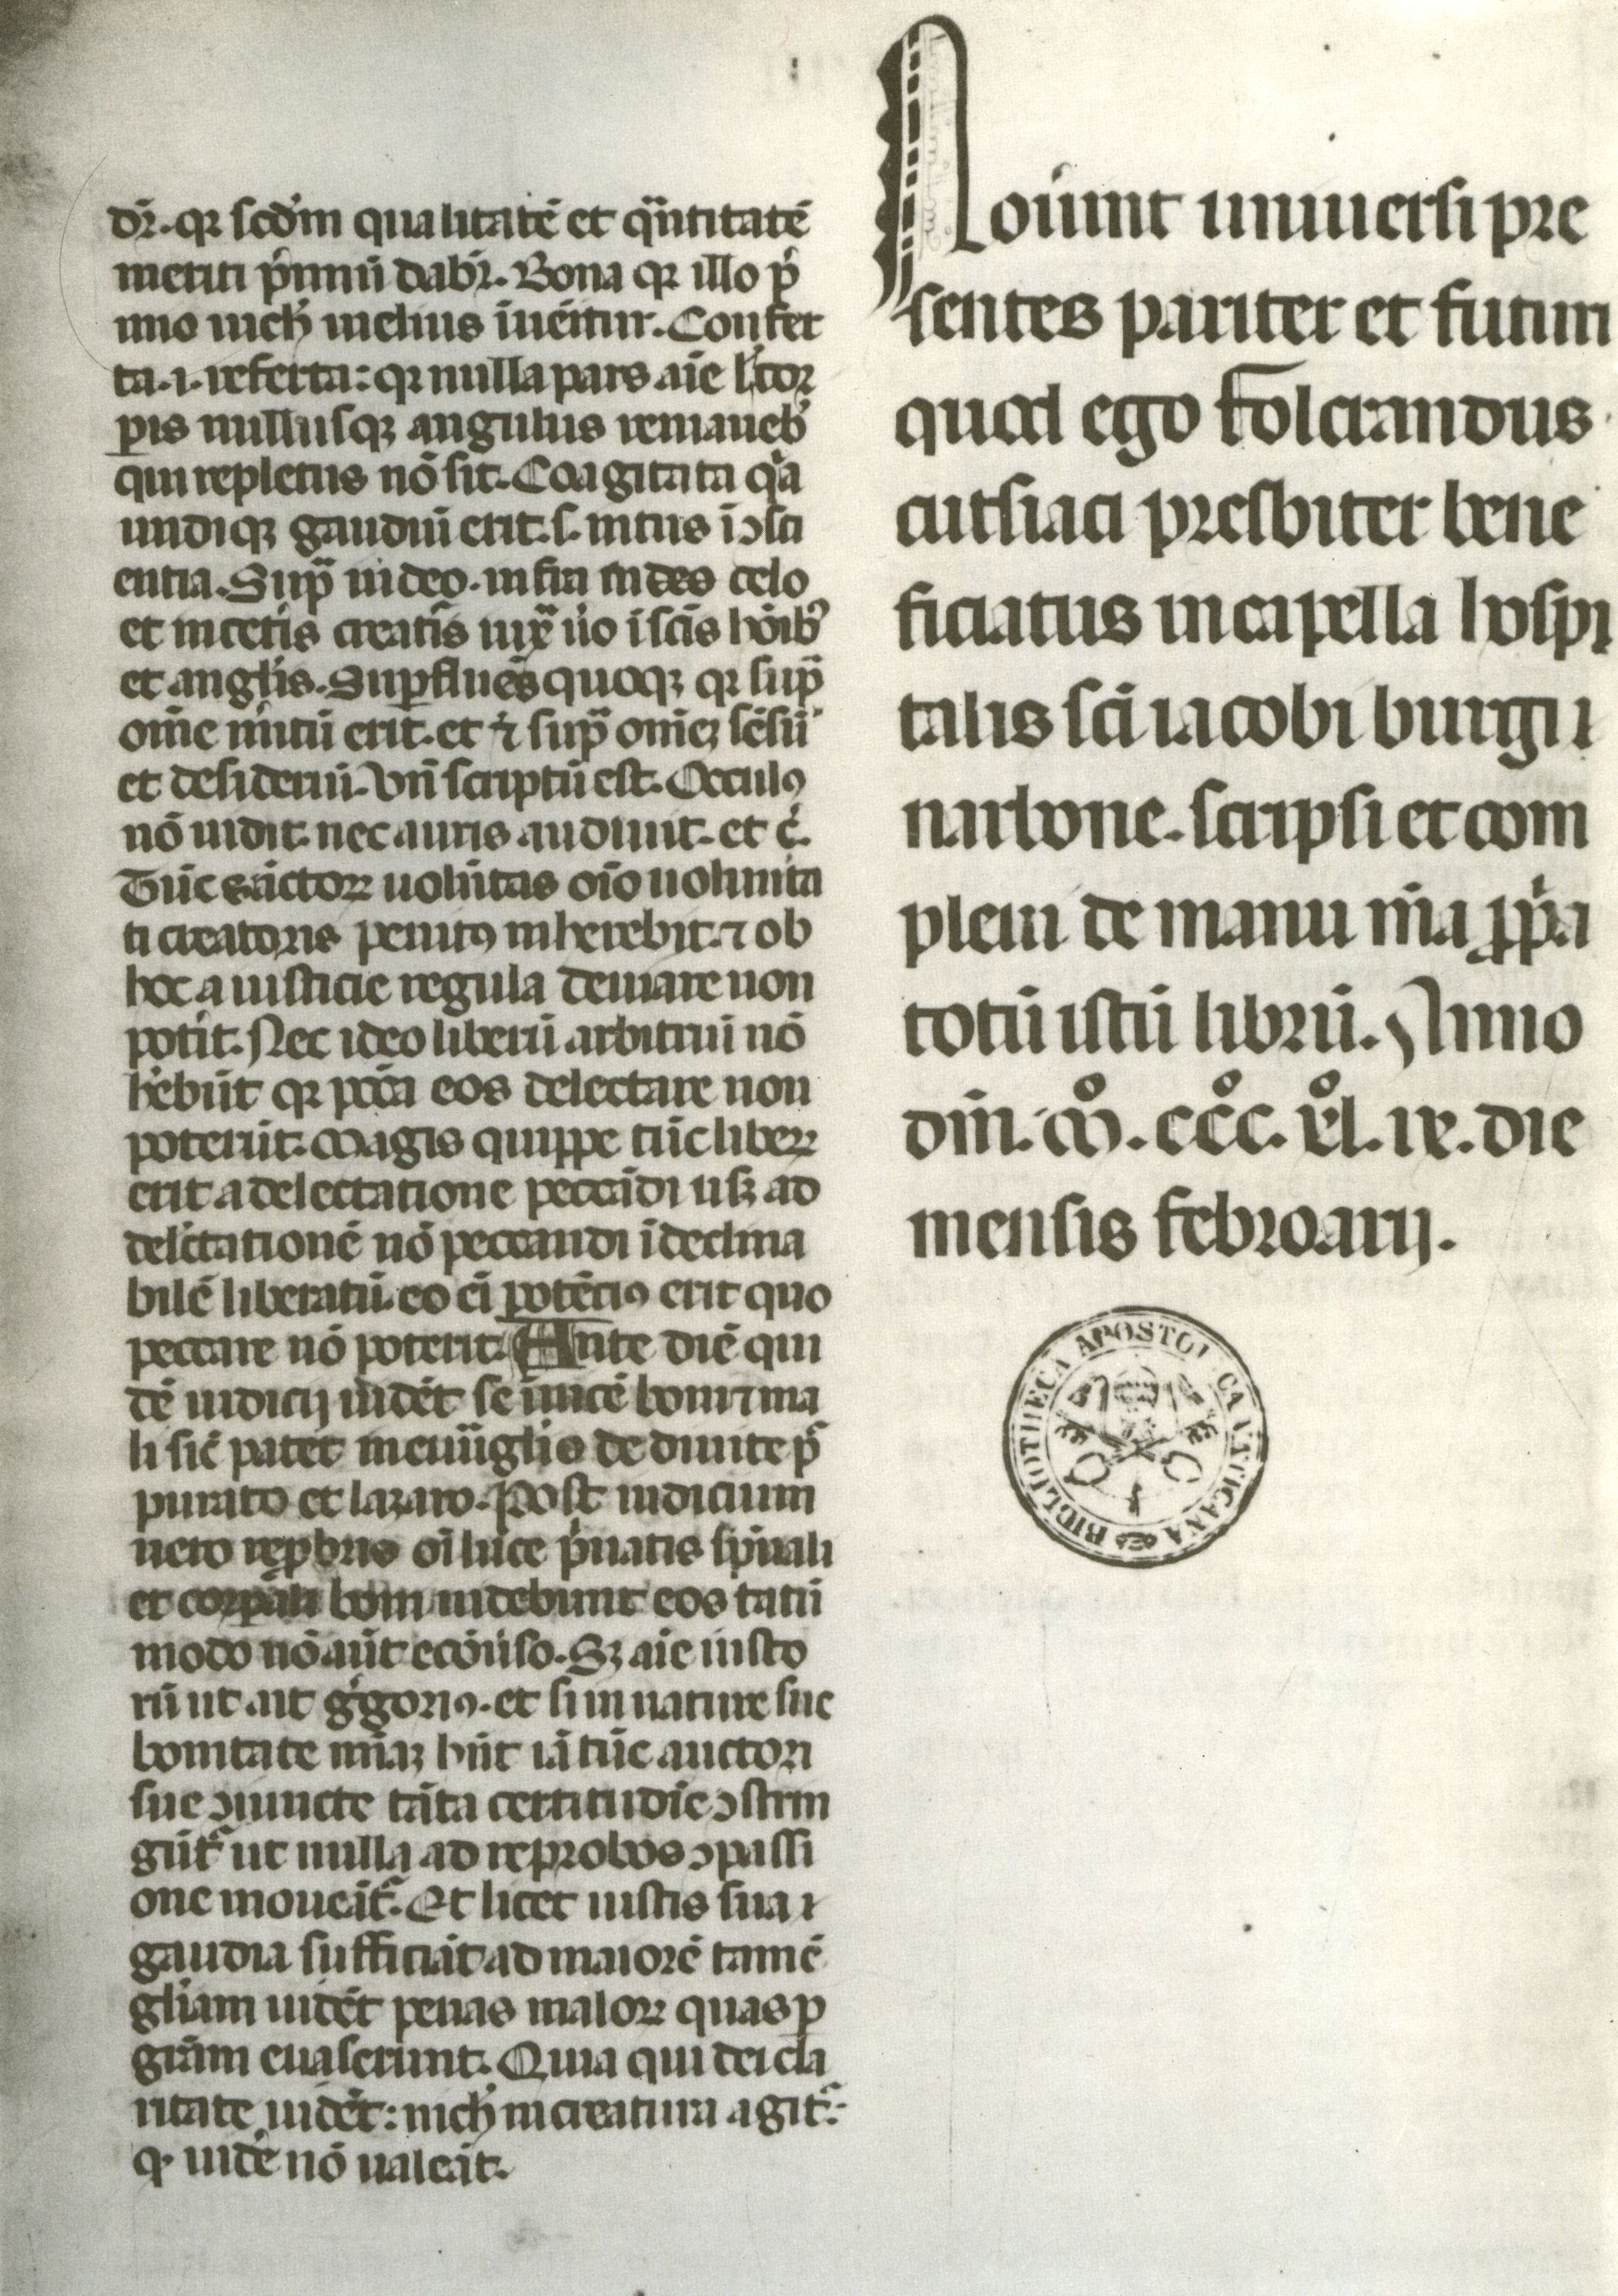 dr̄. qꝛ scd̓m qualitatē et q̄ntitatē
meriti p̓miū dabr̄. Bona qꝛ illo p̓
mio nich̓ melius īuēitur. Confer
ta .i. referta: qꝛ nulla pars aīe l̓ cor
pis nullusqꝫ angulus remaneb̓
qui repletus nō sit. Coagitata q̓a
undiqꝫ gaudiū erit. s. intus ī ꝯsci
entia. Sup̄ in deo. infra in des celo
et in cetīs creatīs iux̄ ūo ī scīs hōib̓
et angl̓is. Suꝑfluēs quoqꝫ qꝛ sup̄
om̄e m̓itū erit. et ⁊ sup̄ omēꝫ sēsū
et desideriū. Vn̄ scriptū est. Occulꝰ
nō uidit. nec auris audiuit. et c̓.
Tūc sāctoꝝ uolūtas oīo uolunta
ti creatoris penitꝰ inherebit. ⁊ ob
hoc a iusticie regula deuiare non
pot̓it. Nec ideo liberū arbitriū nō
h̓ebūt qꝛ pcc̄a eos delectare non
poterūt. Magis quippe tūc libeꝝ
erit a delectatione peccādi usꝫ ad
del̓ctationē nō peccandi īdeclina
bilē liberatū. eo eī potēciꝰ erit quo
peccare nō poterit. Ante diē qui
dē iudicij uidēt se īuicē boni ⁊ ma
li sic̄ patet in euāglio de diuite p̄
purato et lazaro. Post iudicium
uero reꝓbris oī luce p̓uatis sp̄uali
et corp̄ali boni uidebunt eos tātū
modo nō aūt ecōuso. Sꝫ aīe iusto
rū ut ait g̓goriꝰ. et si in nature sue
bonitate mīaꝫ h̄nt iā tūc auctori
suo ꝯiuncte tāta certitudīe ꝯstrin
gūt̄ ut nulla ad reprobos ꝯpassi
one moueāt̄. Et licet iustis sua ⁊
gaudia sufficiāt ad maiorē tamē
gl̓iam uidēt penas maloꝝ quas ꝑ
gr̄am euaserunt. Quia qui dei cla
ritatē uidēt: nich̓ in creatura agit̄.
q̓ uidē nō ualeāt.
Nouīnt uniuersi pre
sentes pariter et futuri
quod ego folcrandus
cutsiaci presbiter bene
ficiatus in capella hospi
talis scī iacobi burgi ⁊
narbone. scripsi et com
pleui de manu mēa ꝓp̓a
totū istū librū. Anno
dn̄i. mº. cccº. xºl. ix. die
mensis febroarij.
BIBLIOTHECA APOSTOLICA VATICANA